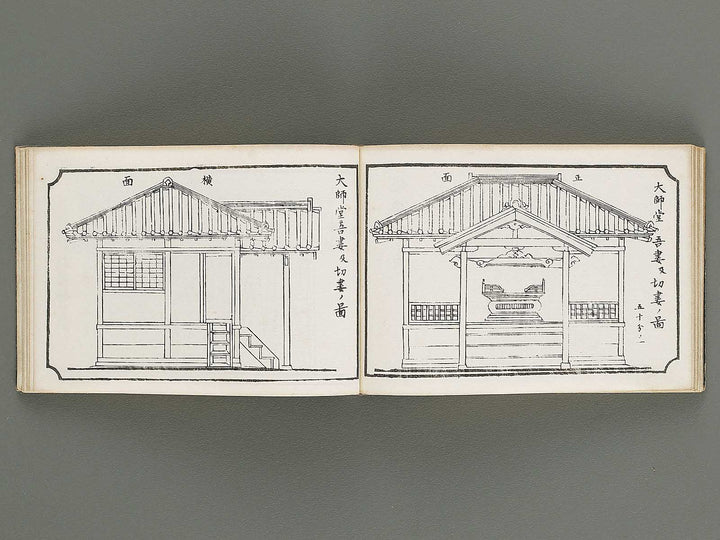 大師堂吾妻及切妻ノ圖
五十分ノ一
正面
大師堂吾妻及切妻ノ圖
横面